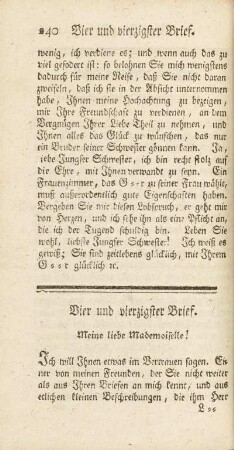 240 Vier und vierzigster Brief.
wenig, ich verdiene es; und wenn auch das zu
viel gefodert ist: so belohnen Sie mich wenigstens
dadurch für meine Reise, daß Sie nicht daran
zweifeln, daß ich sie in der Absicht unternommen
habe, Ihnen meine Hochachtung zu bezeigen,
mir Ihre Freundschaft zu verdienen, an dem
Vergnügen Ihrer Liebe Theil zu nehmen, und
Ihnen alles das Glück zu wünschen, das nur
ein Bruder seiner Schwester gönnen kann. Ja,
liebe Jungfer Schwester, ich bin recht stolz auf
die Ehre, mit Ihnen verwandt zu seyn. Ein
Frauenzimmer, das G==r zu seiner Frau wähle,
muß außerordentlich gute Eigenschaften haben.
Vergeben Sie mir diesen Lobspruch, er geht mir
von Herzen, und ich sehe ihn als eine Pflicht an,
die ich der Tugend schuldig bin. Leben Sie
wohl, liebste Jungfer Schwester! Ich weiß es
gewiß; Sie sind zeitlebens glücklich, mit Ihrem
G==r glücklich ꝛc.
Vier und vierzigster Brief.
Meine liebe Mademoiselle!
Ich will Ihnen etwas im Vertrauen sagen. Ei=
ner von meinen Freunden, der Sie nicht weiter
als aus Ihren Briefen an mich kennt, und aus
etlichen kleinen Beschreibungen, die ihm Herr
L==